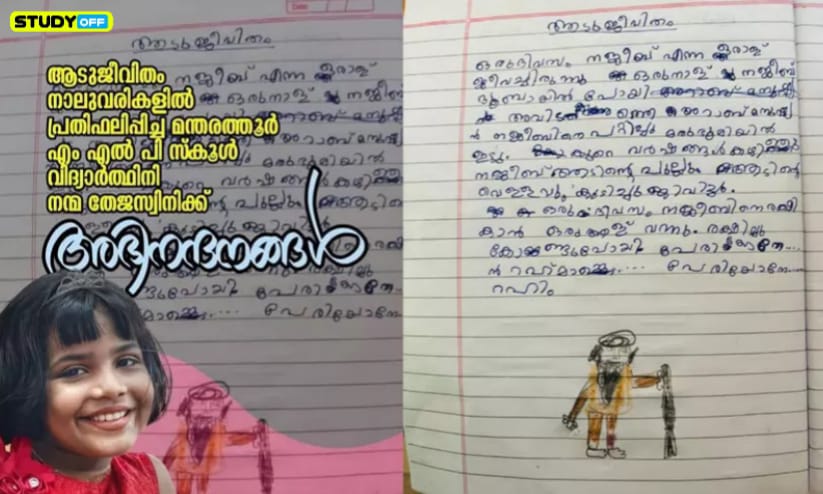 STUDY OFF
ആടുജീവിതം
ആടുജീവിതം
നാലുവരികളിൽ
പ്രതിഫലിപ്പിച്ച മന്തരത്തൂർ
എം എൽ പി സ്കൂൾ
വിദ്യാർത്ഥിനി
നന്മ തേജസ്വിനിക്ക്
അഭിനന്ദനങ്ങൾ
ആടുജീവിതം
ഒരുദിവസം നജീബ് എന്ന ഒരാള്
ജീവച്ചിരുന്നു ഒരുനാള് നജീബ്
ദൂബായിൽ പോയി
അവിടത്തെ അറാബ് മനുഷ്യ
ൻ നജീബിനെ പറ്റിച്ചു മരുഭൂമിയിൽ
ഇട്ടു. കുറെ വർഷങ്ങൾ കഴിഞ്ഞു
നജീബ് ആടിന്റെ പുല്ലും ആടിന്റെ
വെളളവും കുടിച്ചു ജീവിച്ചു.
ഒരു ദിവസം നജീബിനെ രക്ഷി
കാൻ ഒരാള് വന്നു. രക്ഷിച്ചു
കോണ്ടുപോയി പേരി
ൻ റഹ്മാനെ..... പേരിയോനേ....
റഹിം